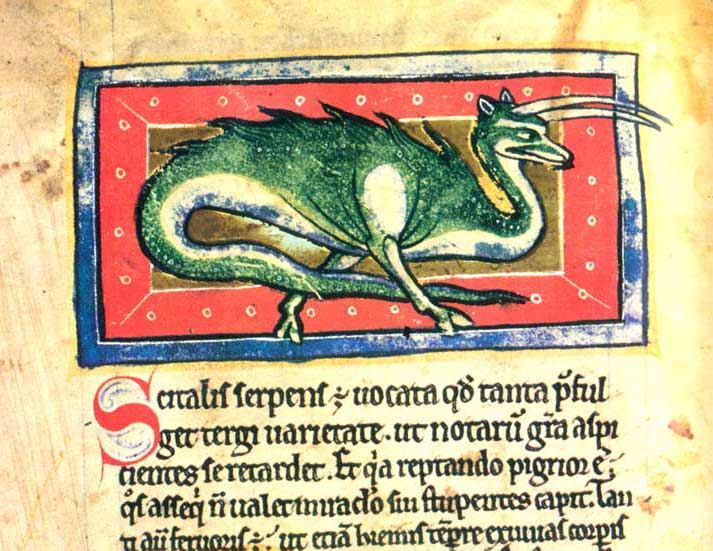 Scitalis serpens ÷ uocata qđ tanta p̄ful
get tergi uarietate. ut notarū gr̄a aspi
cientes se retardet. Et q̇a reptando pigrior ē;
q̇s asseq̇ n̄ ualet miraclo sui stupentes capit. Tan
ti aū feruoris ÷; ut etiā hiemis tēpre exuuias corpis